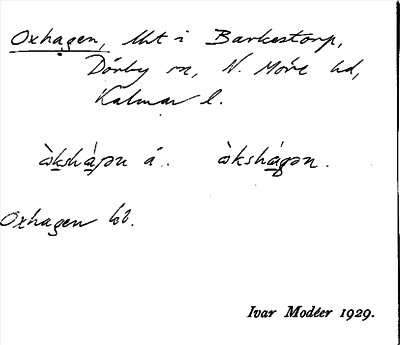 Oxhagen, lht i Barkestorp,
Dörby sn, N. Möre hd,
Kalmar l.
òkshá̱gən á. òkshá̱gən.
Oxhagen kb.
Ivar Modéer 1929.